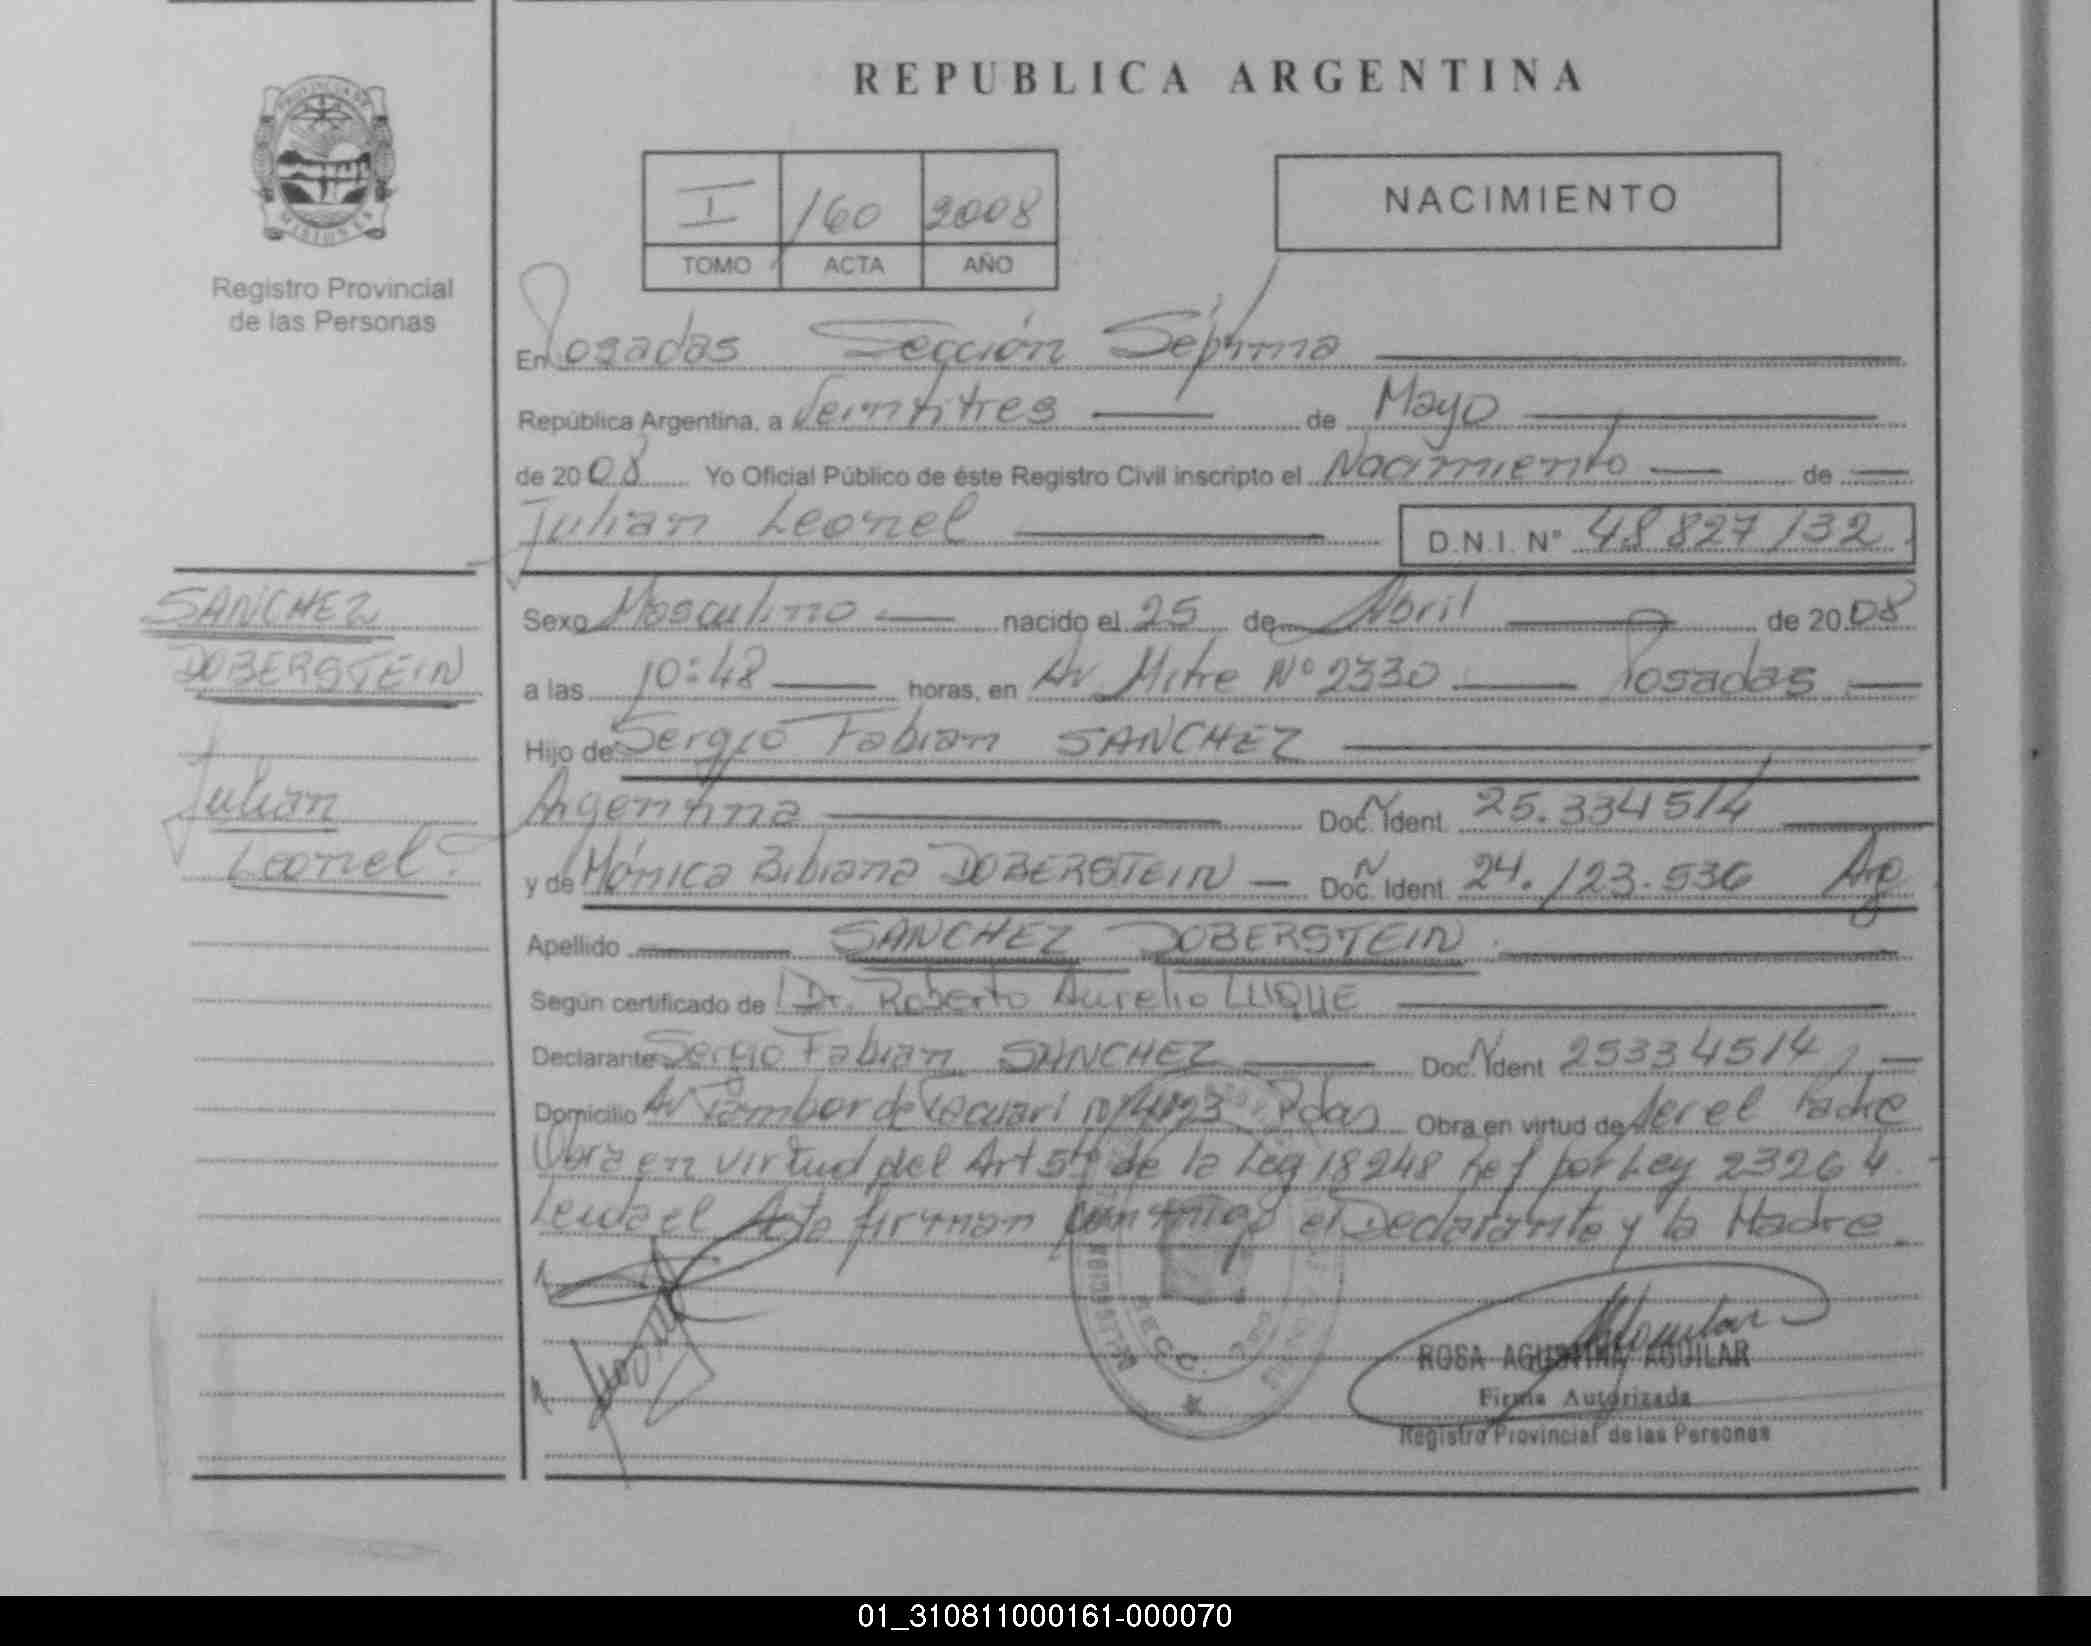 REPUBLICA ARGENTINA
PROVINCIA DE
MISIONES
Registro Provincial
de las Personas
I 160 2008
TOMO ACTA AÑO
NACIMIENTO
En Posadas Sección Séptima
República Argentina, a Veintitres de Mayo
de 2008 Yo Oficial Público de éste Registro Civil inscripto el Nacimiento de
Julian Leonel D.N.I. N° 48827132
SANCHEZ
DOBERSTEIN
Julian
Leonel
Sexo Masculino nacido el 25 de Abril de 2008
a las 10:48 horas, en Av Mitre Nº 2330 Posadas
Hijo de Sergio Fabian SANCHEZ
Argentina Doc. Ident. 25.334514
y de Mónica Bibiana DOBERSTEIN Doc. Ident. 24.123.536 Arg
Apellido SANCHEZ DOBERSTEIN
Según certificado de Dr. Roberto Aurelio LUQUE
Declarante Sergio Fabian SANCHEZ Doc. Ident 25334514
Domicilio Av Tambor de Tacuari Nº 4023 Pdas Obra en virtud de ser el Padre
Obra en virtud del Art 5to de la Ley 18248 Ref por Ley 23264.
Leida el Acta firman conmigo el Declarante y la Madre.
SECC.
ROSA AGUSTINA AGUILAR
Firma Autorizada
Registro Provincial de las Personas
01_310811000161-000070